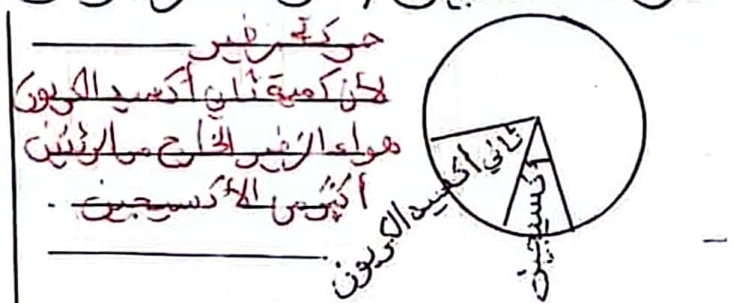 حركة زفير
لأن كمية ثاني أكسيد الكربون
هواء الزفير الخارج من الرئتين
أكثر من الأكسجين
ثاني أكسيد الكربون
أكسجين